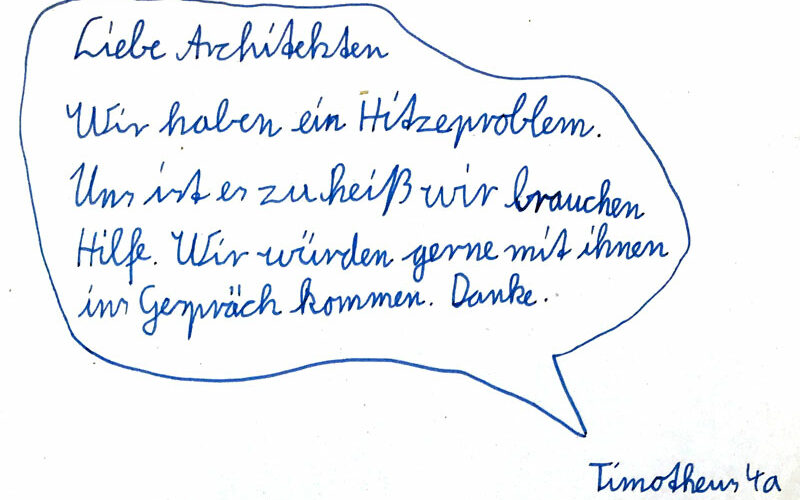 Liebe Architekten
Wir haben ein Hitzeproblem.
Uns ist es zu heiß wir brauchen
Hilfe. Wir würden gerne mit ihnen
ins Gespräch kommen. Danke.
Timotheus 4a